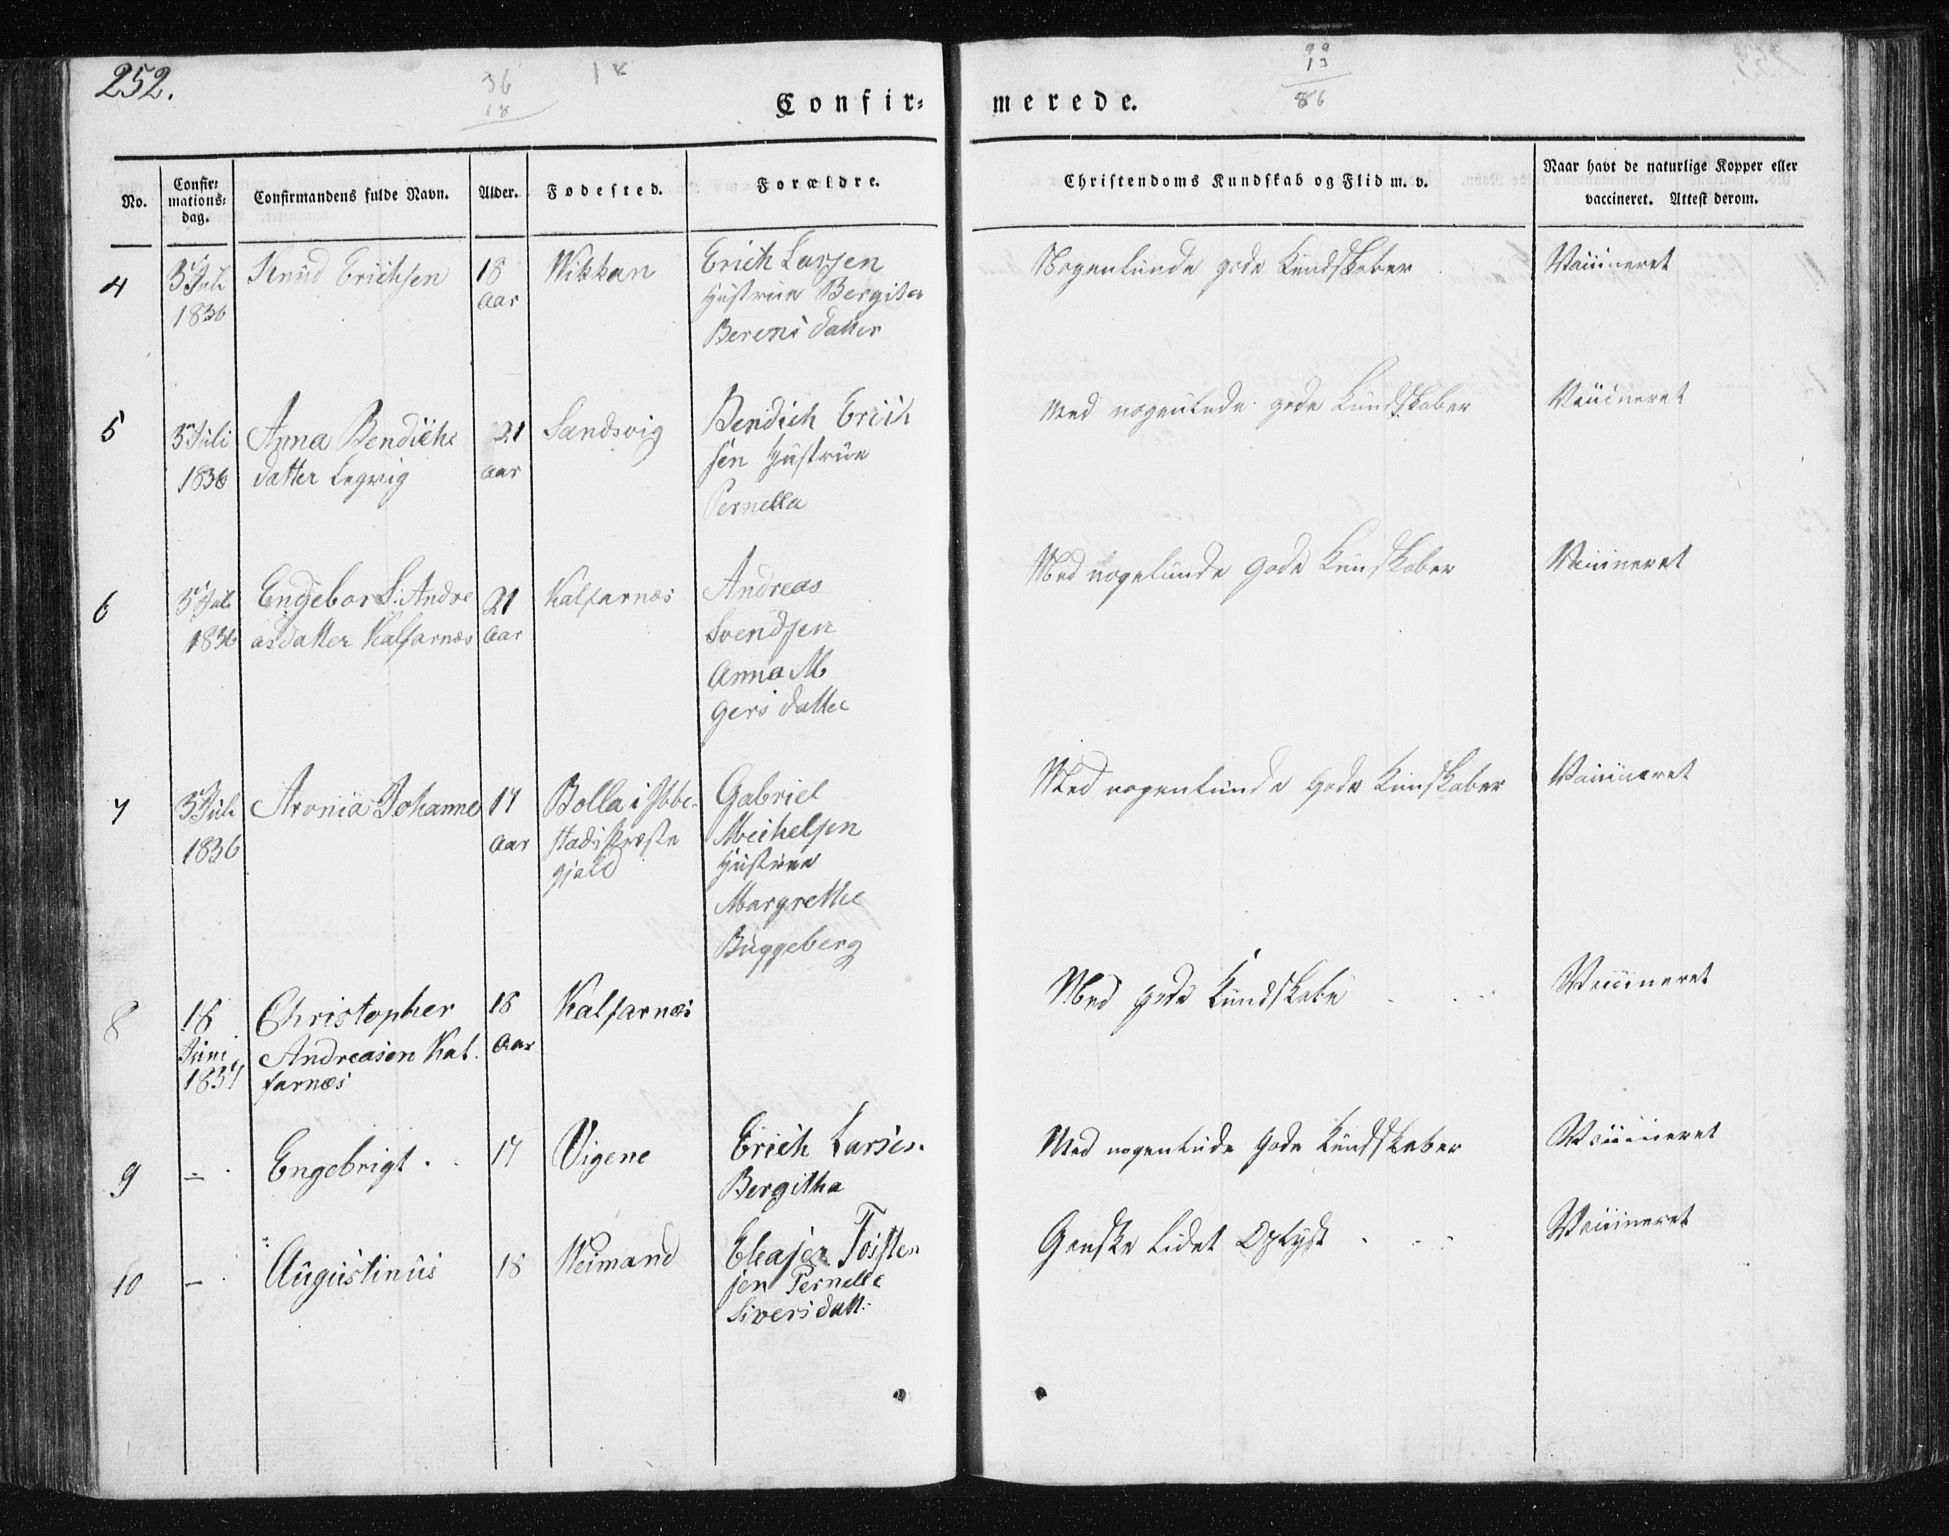 252.
36
18
1
99
13
86
Confir=
merede.
No.
Confir=
mations=
dag.
Confirmandens fulde Navn.
Alder.
Fødested.
Forældre.
Christendoms Kundskab og Flid m. v.
Naar havt de naturlige Kopper eller
vaccineret. Attest derom.
4
3 Juli
1836
Knud Erichsen
18
aar
Vikkan
Erich Larsen
Hustrue Bergita
Berensdatter
Nogenlunde gode Kundskaber
Vaccineret
5
3 Juli
1836
Anna Bendichs
datter Legvig
21
aar
Sandsvig
Bendich Erich
sen Hustrue
Pernella
Med nogenlunde gode Kundskaber
Vaccineret
6
3 Juli
1836
Engebor S. Andre
asdatter Kalfarnæs
21
aar
Kalfarnæs
Andreas
Svendsen
Anna M
gersdatter
Med nogelunde gode Kunskaber
Vaccineret
7
3 Juli
1836
Aronia Johanne
17
aar
Bolla i Ibbe=
stads Præste
gjæld
Gabriel
Meichelsen
Hustrue
Margrethe
Buggeberg
Med nogenlunde gode Kunskaber
Vaccineret
8
18
Juni
1837
Christopher
Andreasen Kal
farnæs
18
aar
Kalfarnæs
Med gode Kundskaber
Vaccineret
9
—
Engebrigt
17
Vigene
Erich Larsen
Bergitha
Med nogenlunde gode Kundskaber
Vaccineret
10
—
Augustinus
18
Weimand
Eleaser Tosten
sen Pernelle
Siversdatt:
Ganske lidet Oplyst
Vaccineret